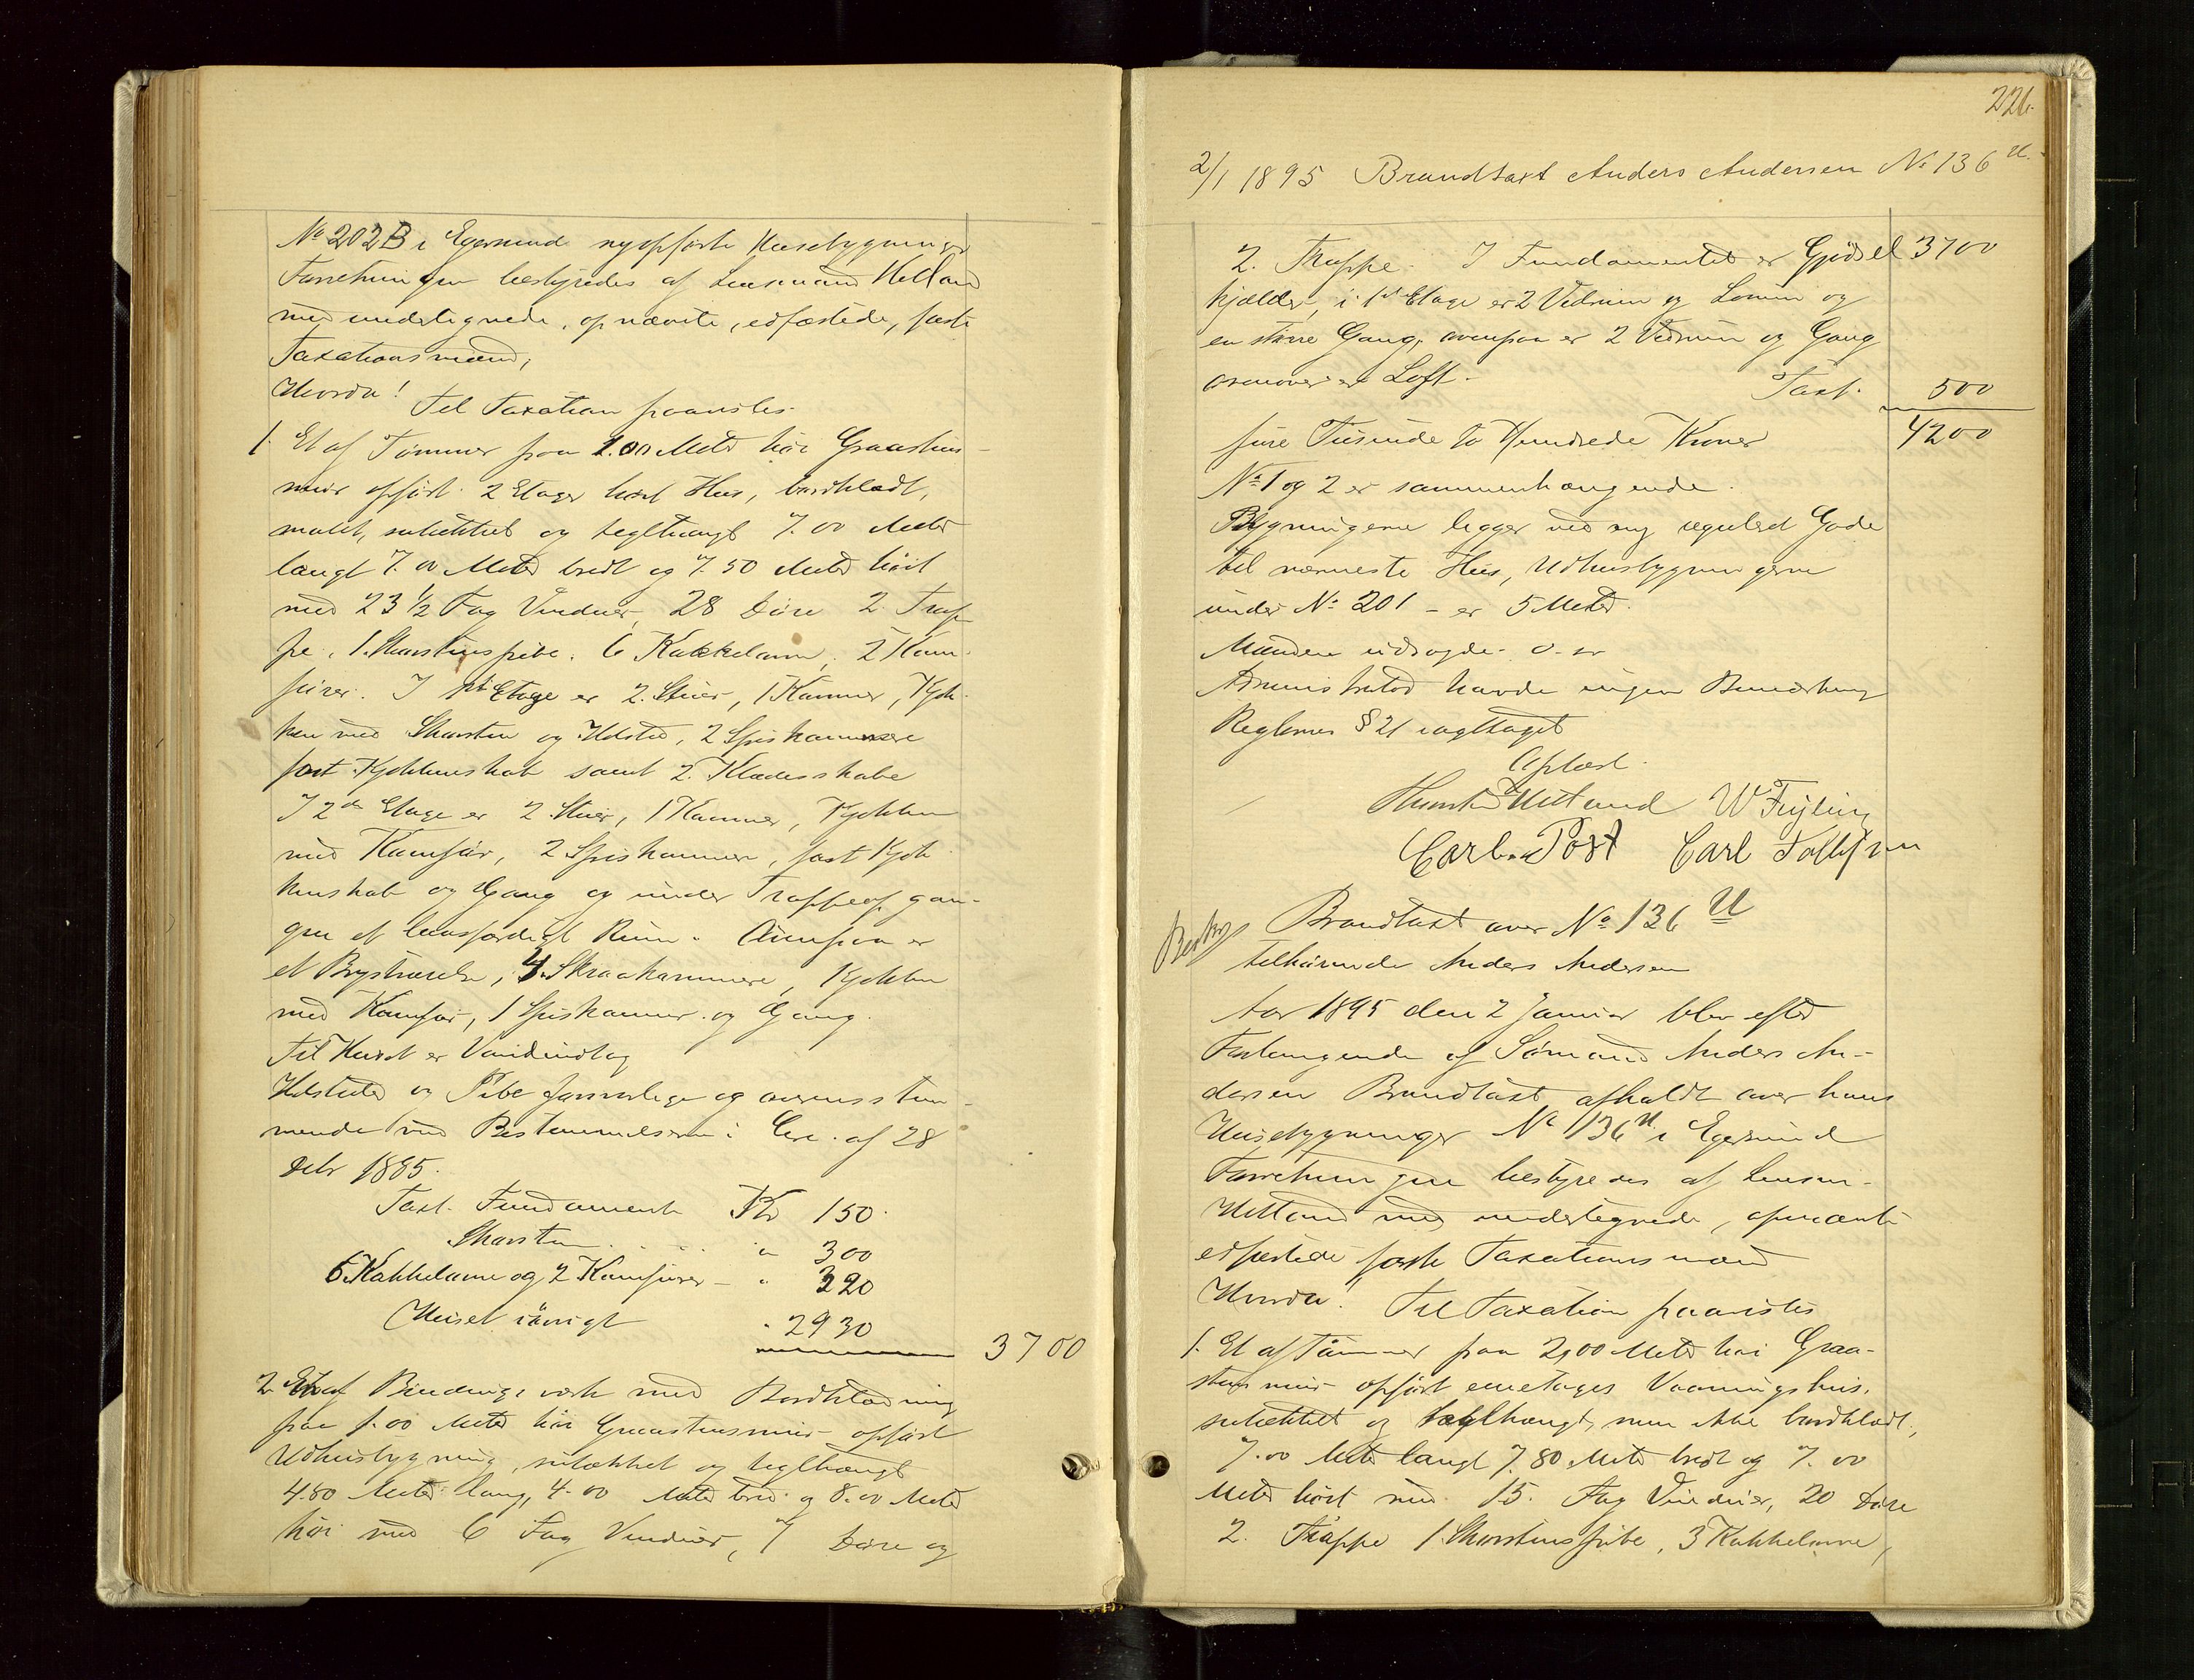 No 202B i Egersund nyopførte Husebygninger
Forretningen bestyredes af Lensmand Hetland
med undertegnede, opnævnte, edfæstede, faste
Taxationsmænd,
Hvorda!
Til Taxation paavistes
1. Et af Tømmer paa 1.00 Meter høi Graastens-
mur opført 2 Etager høit Hus, bordklædt,
malet, sutækket og teglhængt 7.00 Meter
langt 7.00 Meter bredt og 7.50 Meter høit
med 23 1/2 Fag Vinduer, 28 Døre 2 Trap
pe, 1 Skorstenspibe, 6 Kakkelovne, 2 Kom
fürer. I 1ste Etage er 2 Stuer, 1 Kammer, Kjøk-
ken med Skorsten og Ildsted, 2 Spiskammere
fast Kjøkkenskab samt 2 Klædesskabe
I 2den Etage er 2 Stuer, 1 Kammer, Kjøkken
med Komfür, 2 Spiskammer, fast Kjøk
kenskab og Gang og under Trappeop gan-
gen et Rum. Ovenpaa er
et Brystværelse, 4 Skraakammere, Kjøkken
med Komfur, 1 Spiskammer og Gang.
Til Huset er Vandindlag
Ildsteder og Pibe forsvarlige og overensstem-
mende med Bestemmelserne i Circ. af 28
Debr 1885.
Taxt. Fundament Kr 150
Skorsten . . . . " 300
6 Kakkelovne og 2 Komfürer - " 320
Huset iøvrigt " 2930
3700
2. Et af Bindingsverk med Bordklædning
paa 1.00 Meter høi Graastensmur opført
Udhusbygning, sutækket og teglhængt
4.80 Meter lang, 4.00 Meter bred og 8.00 Meter
høi med 6 Fag Vinduer, 7 Døre og
226.
2/1 1895 Brandtaxt Anders Andersen No 136 U.
2. Trappe. I Fundamentet er Gjødsel 3700
kjælder, i 1ste Etage er 2 Vedrum og og
en større Gang, ovenpaa er 2 Vedrum og Gang
ovenover er Loft. Taxt. 500
fire Tusinde to Hundrede Kroner 4200
No 1 og 2 er sammenhængende.
Bygningerne ligger ved ny reguleret Gade
til nærmeste Hus, Udhusbygningerne
under No 201 - er 5 Meter.
Manden udsagde
Administrator havde ingen Bemærkning
Reglernes § 21 iagttaget
Oplæst.
Hetland W Feyling
Carl Post Carl Tollefsen
Brandtaxt over No 136 U
tilhørende Anders Andersen
Aar 1895 den 2 Januar blev efter
Forlangende af Sømand Anders An-
dersen Brandtaxt afholdt over hans
Husebygninger No 136 U i Egersund
Forretningen bestyredes af Lensm.
Hetland med undertegnede, opnævnte
edfæstede faste Taxationsmænd
Hvorda! Til Taxation paavistes
1. Et af Tømmer paa 2,00 Meter høi Graa-
stensmur opført enetages Vaaningshus,
sutækket og teglhængt, men ikke bordklædt,
7.00 Meter langt 7.80 Meter bredt og 7.00
Meter høit med 15 Fag Vinduer, 20 Døre
2 Trappe 1 Skorstenspibe, 3 Kakkelovne,